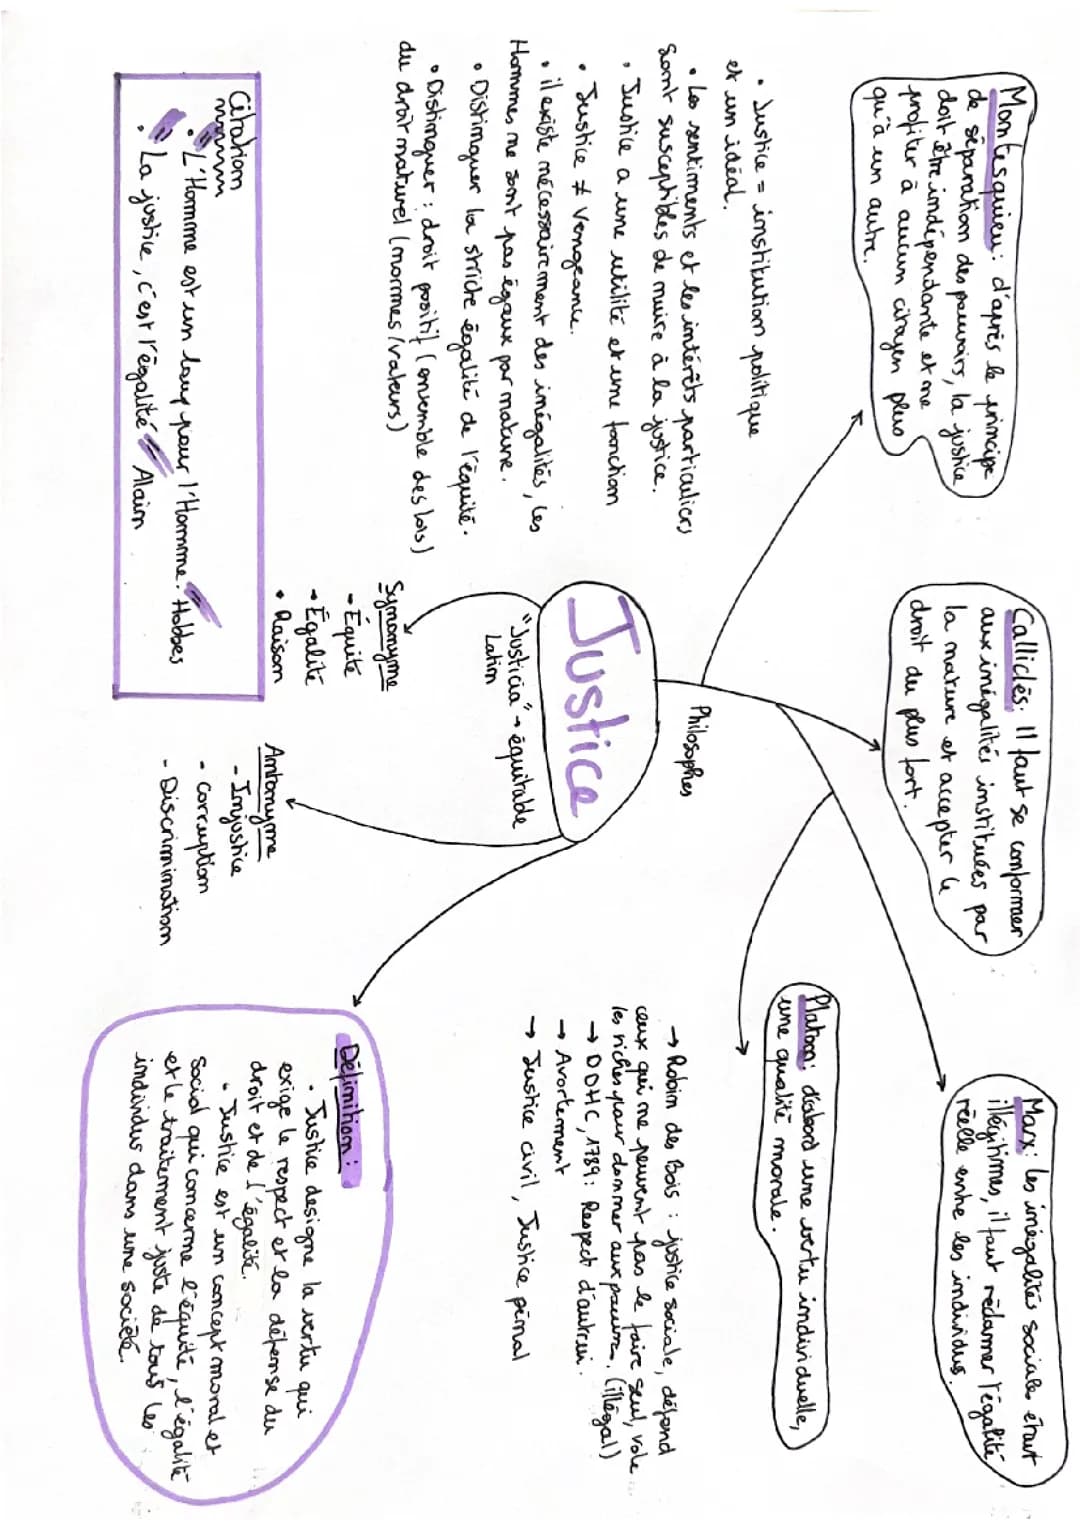 Montesquieu : d'après le principe
de séparation des pouvoirs, la justice
doit être indépendante et ne
profiter à aucun citoyen plus
qu'à un autre.
Calliclès : Il faut se conformer
aux inégalités instituées par
la nature et accepter le
droit du plus fort.
Marx : les inégalités sociales étant
illégitimes, il faut réclamer l'égalité
réelle entre les individus.
Platon : d'abord une vertu individuelle,
une qualité morale.
Philosophes
• Justice = institution politique
et un idéal.
• Les sentiments et les intérêts particuliers
sont susceptibles de nuire à la justice.
• Justice a une utilité et une fonction
• Justice ≠ Vengeance.
• il existe nécessairement des inégalités, les
Hommes ne sont pas égaux par nature.
• Distinguer la stricte égalité de l'équité.
• Distinguer : droit positif (ensemble des lois)
du droit naturel (normes/valeurs)
Justice
"Justicia" → équitable
Latin
→ Robin des Bois : justice sociale, défend
ceux qui ne peuvent pas le faire seul, vole
les riches pour donner aux pauvres. (illégal)
→ DDHC, 1789 : Respect d'autrui.
→ Avortement
→ Justice civil, Justice pénal
Synonyme
- Équité
- Égalité
• Raison
Antonyme
- Injustice
- Corruption
- Discrimination
Définition :
• Justice designe la vertu qui
exige le respect et la défense du
droit et de l'égalité.
• Justice est un concept moral et
social qui concerne l'équité, l'égalité
et le traitement juste de tous les
individus dans une société.
Citation
• "L'Homme est un loup pour l'Homme." Hobbes
• "La justice, c'est l'égalité" Alain